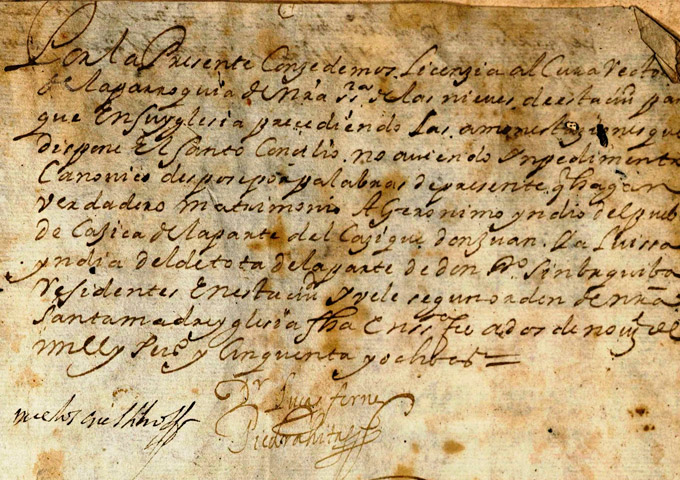 Por la Presente Consedemos Licenzia al Cura Rector
de la parroquia de nra sra de las nieves de esta ciud para
que En su yglesia precediendo Las amonestaziones que
dispone El Santo Concilio no aviendo ynpedimento
Canonico despose por palabras de presente q hagan
verdadero matrimonio A Geronimo yndio del pueb
de Casica de la parte del Casique don Juan. Ya Luissa
yndia del de tota de la parte de don Po
Residentes En esta ciud y vele segun orden de nra
Santa madre yglesia fha En sta fee a dos de nou de
mill y seis y Cinquenta y ocho as =
Dr Lucas ferns
Piedrahita